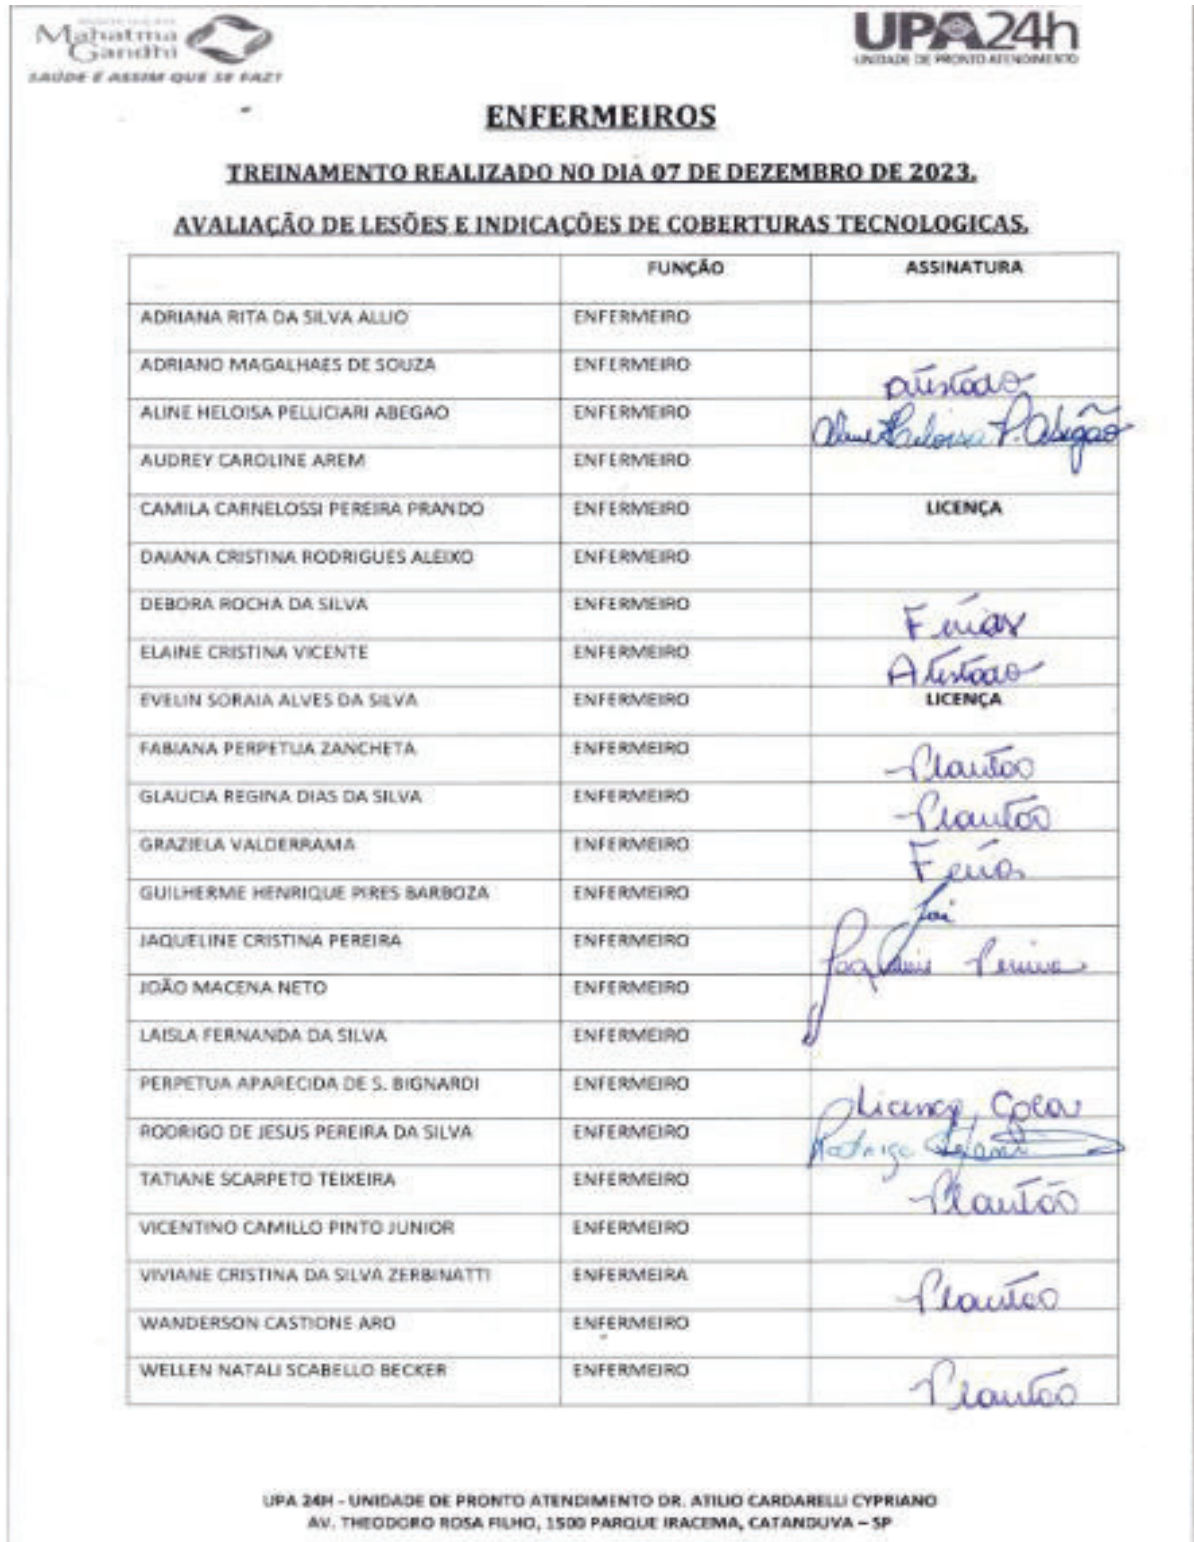 Mahatma
Gandhi
SAÚDE É ASSIM QUE SE FAZ!
UPA24h
UNIDADE DE PRONTO ATENDIMENTO
ENFERMEIROS
TREINAMENTO REALIZADO NO DIA 07 DE DEZEMBRO DE 2023.
AVALIAÇÃO DE LESÕES E INDICAÇÕES DE COBERTURAS TECNOLOGICAS.
FUNÇÃO ASSINATURA
ADRIANA RITA DA SILVA ALLIO ENFERMEIRO
ADRIANO MAGALHAES DE SOUZA ENFERMEIRO atestado
ALINE HELOISA PELLICIARI ABEGAO ENFERMEIRO Aline Heloisa P. Abegão
AUDREY CAROLINE AREM ENFERMEIRO
CAMILA CARNELOSSI PEREIRA PRANDO ENFERMEIRO LICENÇA
DAIANA CRISTINA RODRIGUES ALEIXO ENFERMEIRO
DEBORA ROCHA DA SILVA ENFERMEIRO Ferias
ELAINE CRISTINA VICENTE ENFERMEIRO Atestado
EVELIN SORAIA ALVES DA SILVA ENFERMEIRO LICENÇA
FABIANA PERPETUA ZANCHETA ENFERMEIRO Plantão
GLAUCIA REGINA DIAS DA SILVA ENFERMEIRO Plantão
GRAZIELA VALDERRAMA ENFERMEIRO Ferias
GUILHERME HENRIQUE PIRES BARBOZA ENFERMEIRO
JAQUELINE CRISTINA PEREIRA ENFERMEIRO Pereira
JOÃO MACENA NETO ENFERMEIRO
LAISLA FERNANDA DA SILVA ENFERMEIRO
PERPETUA APARECIDA DE S. BIGNARDI ENFERMEIRO Licença
RODRIGO DE JESUS PEREIRA DA SILVA ENFERMEIRO Rodrigo
TATIANE SCARPETO TEIXEIRA ENFERMEIRO Plantão
VICENTINO CAMILLO PINTO JUNIOR ENFERMEIRO
VIVIANE CRISTINA DA SILVA ZERBINATTI ENFERMEIRA Plantão
WANDERSON CASTIONE ARO ENFERMEIRO
WELLEN NATALI SCABELLO BECKER ENFERMEIRO Plantão
UPA 24H - UNIDADE DE PRONTO ATENDIMENTO DR. ATILIO CARDARELLI CYPRIANO
AV. THEODORO ROSA FILHO, 1500 PARQUE IRACEMA, CATANDUVA – SP